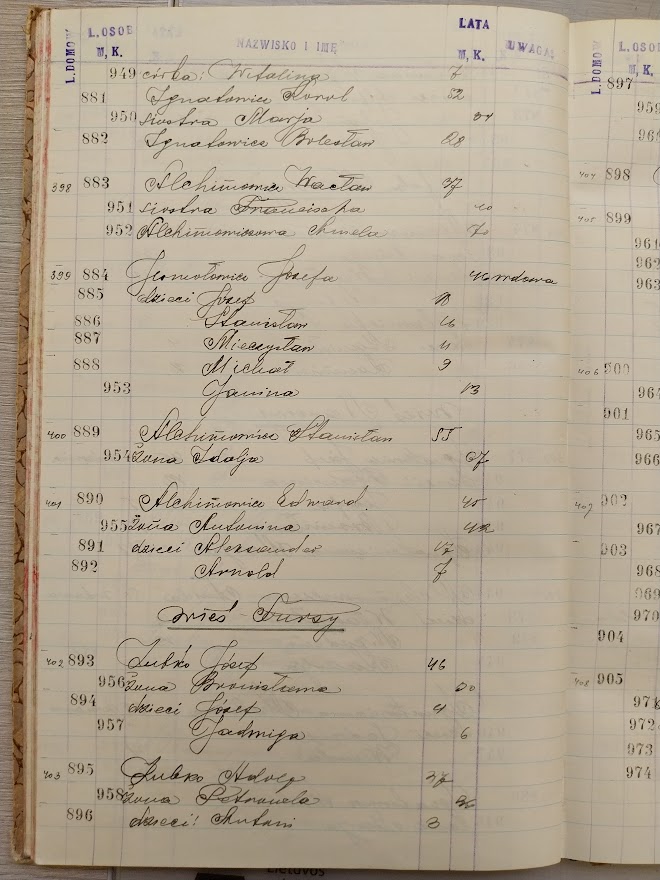 L. DOMOW L. OSOB M. K. NAZWISKO I IMĘ LATA M. K. UWAGA
949 córka: Witalina 7
881 Ignatowicz Karol 52
950 siostra Marja
882 Ignatowicz Bolesław 28
398 883 Alchimowicz Wacław 37
951 siostra Franciszka 40
952 Alchimowiczowa 70
399 884 Józefa 46 wdowa
885 dzieci Józef
886 Stanisław 16
887 Mieczysław 11
888 Michał 9
953 Janina 13
400 889 Alchimowicz Stanisław 55
954 Żona Idalja
401 890 Alchimowicz Edward 45
955 Żona Antonina 42
891 dzieci Aleksander 17
892 Arnold 7
wieś Tursy
402 893 Zubko Józef 46
956 Żona Bronisława 30
894 dzieci Józef 4
957 Jadwiga 6
403 895 Zubko Adolf 37
958 Żona Petronela
896 dzieci: 3
L. DOMOW L. OSOB M. K.
897
959
960
404 898
405 899
961
962
963
406 900
964
901
965
966
407 902
967
903
968
969
970
904
408 905
971
972
973
974
Lietuvos